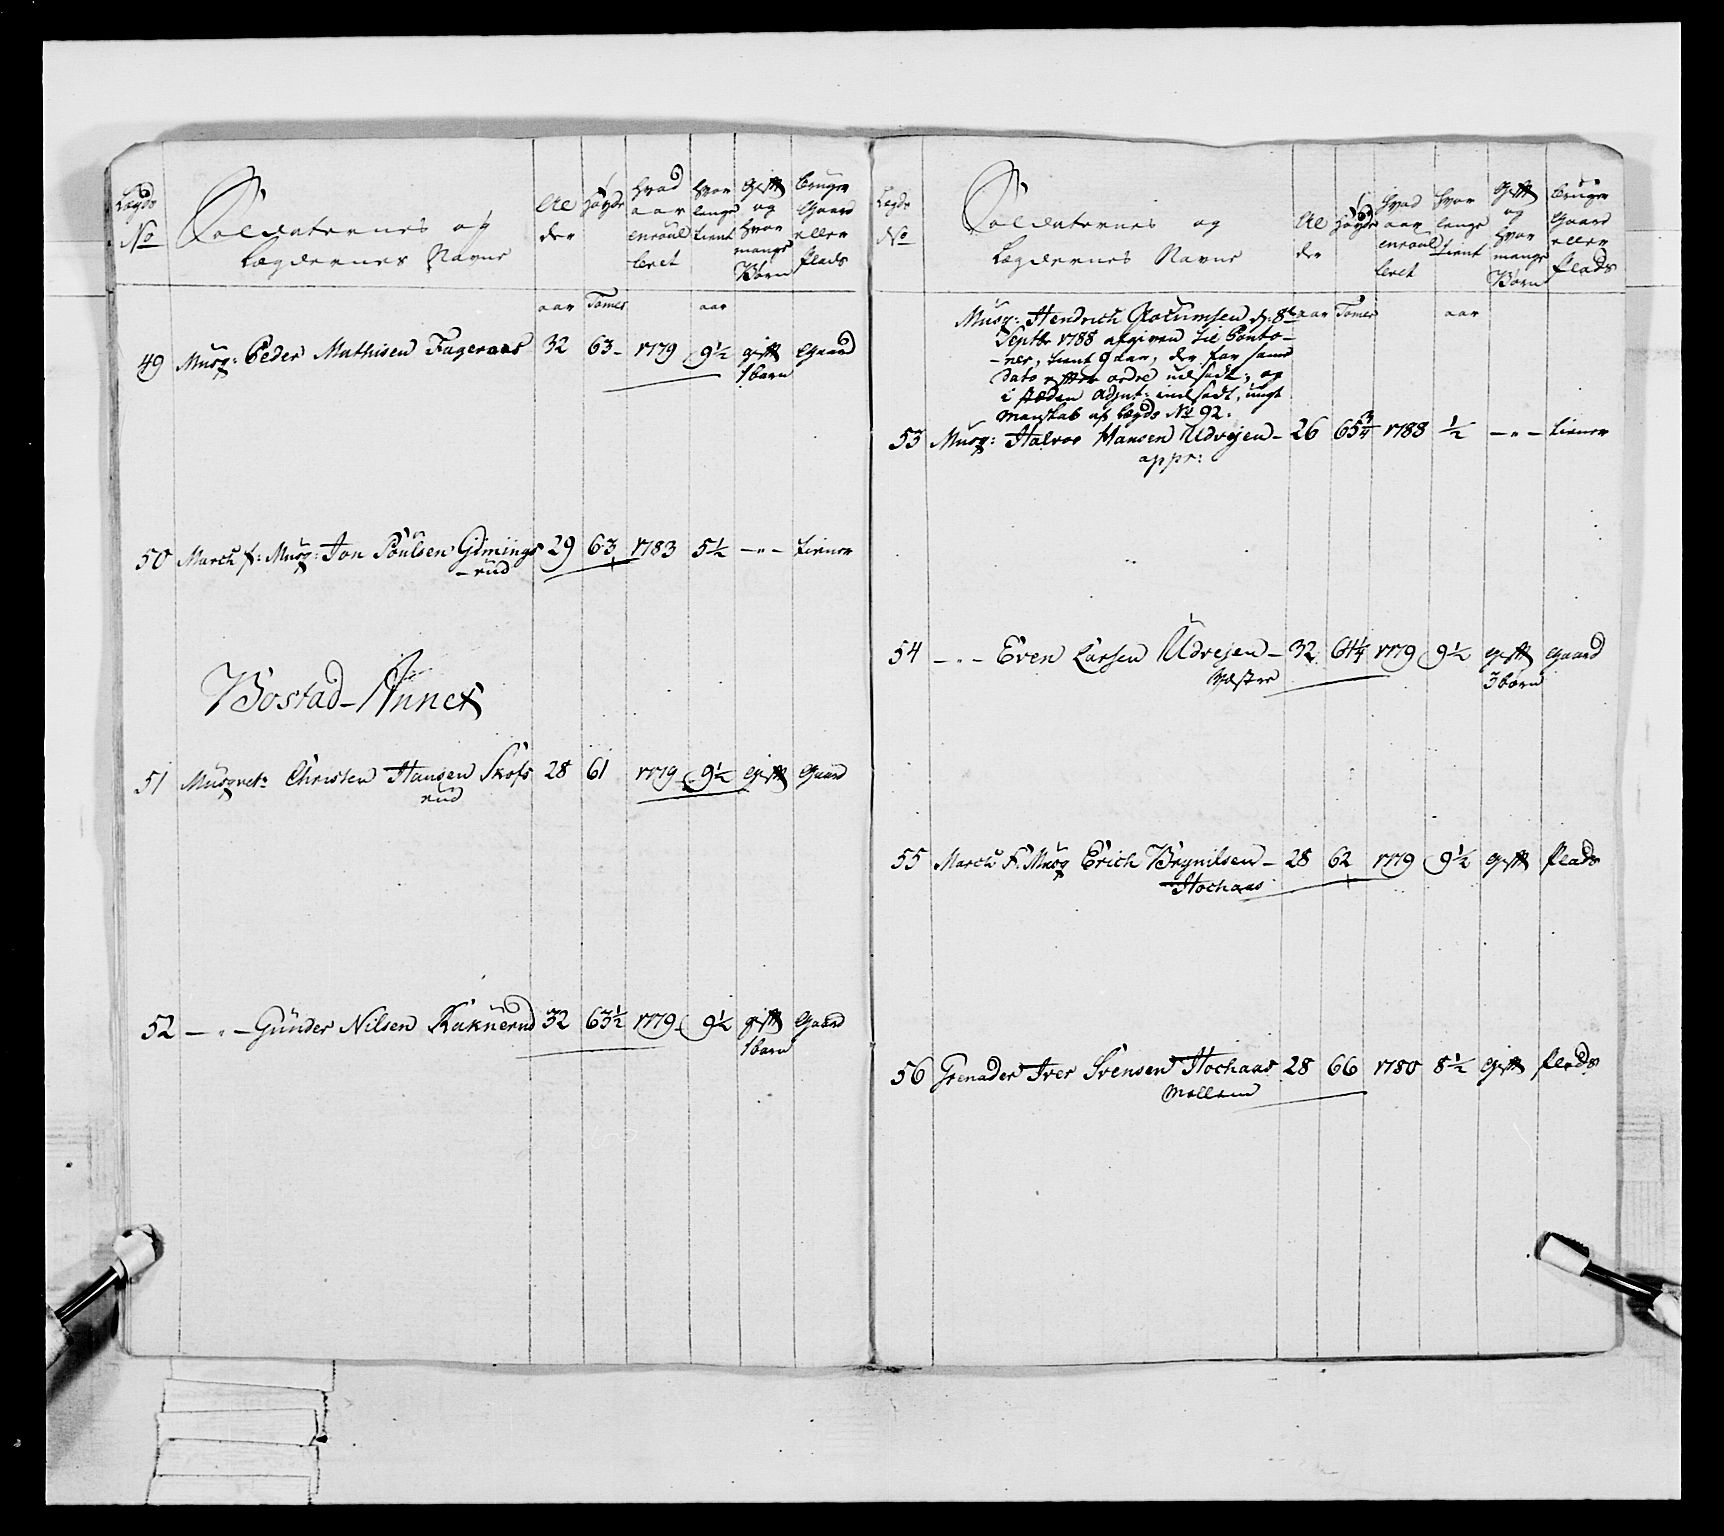 Lægds No
Soldaternes og Lægdernes Navne
Alder
Høyde
Hvad aar enroulleret
Hvor lenge tient
Gift og hvor mange Børn
Bruger Gaard eller Plads
aar Tomer aar
49 Musq: Peder Mathisen Fageraas 32 63- 1779 9½ gift Gaard
1 barn
50 March f: Musq: Jon Poulsen Gimings 29 63 1783 5½ —"— tiener
-rud
Bostad-Annex
51 Musqvet: Christen Hansen Skofs 28 61 1779 9½ Gift Gaard
rud
52 —"— Gunder Nilsen Kaknerud 32 63½ 1779 9½ gift Gaard
1 barn
Lægds No
Soldaternes og Lægdernes Navne
Alder
Høyde
Hvad aar enroulleret
Hvor lenge tient
Gift og hvor mange Børn
Bruger Gaard eller Plads
Musq: Hendrich d: 8de aar Tomer aar
Septbr 1788 afgiven til Ponto-
-ner, tient 9 aar, der for samme
Dato efter ordre udsadt, og
i stæden Adjut: indsadt, ungt
Manskab af Lægds No 92.
53 Musq: Halvor Hansen Udvejen- 26 65¾ 1788 ½ —"— tiener
appr:
54 —"— Even Larsen Udvejen- 32 64¼ 1779 9½ gift gaard
Væstre 3 børn
55 March F: Musq Erich Brynilsen- 28 62 1779 9½ gift plads
Hochaas
56 Grenader Iver Svensen Hochaas 28 66 1780 8½ Gift plads
Mellem